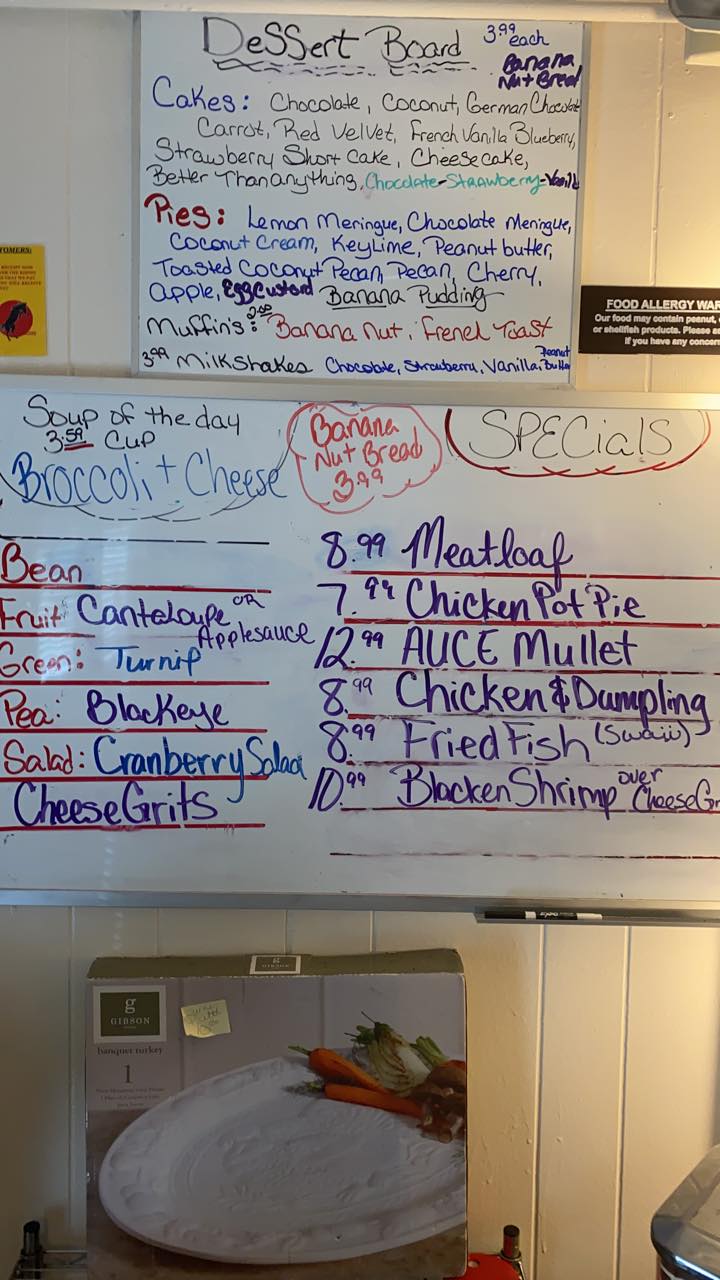 DeSSert Board 3.99 each
Banana
Nut Bread
Cakes: Chocolate, Coconut, German Chocolate
Carrot, Red Velvet, French Vanilla Blueberry,
Strawberry Short Cake, Cheesecake,
Better Than anything, Chocolate-Strawberry-Vanilla
Pies: Lemon Meringue, Chocolate Meringue,
Coconut Cream, Key Lime, Peanut butter,
Toasted Coconut Pecan, Pecan, Cherry,
Apple, Egg Custard Banana Pudding
Muffin's: 2.50 Banana Nut, Frencl Toast
3.99 Milkshakes Chocolate, Strawberry, Vanilla, Peanut Butter
TOMERS:
FOOD ALLERGY WAR
Our food may contain peanut,
or shellfish products. Please as
if you have any concern
Soup of the day
3.59 Cup
Broccoli + Cheese
Banana
Nut Bread
3.99
SPECialS
Bean
Fruit Canteloupe OR
Applesauce
Green: Turnip
Pea: Blackeye
Salad: Cranberry Salad
Cheese Grits
8.99 Meatloaf
7.99 Chicken Pot Pie
12.99 AUCE Mullet
8.99 Chicken & Dumpling
8.99 Fried Fish (Swaii)
10.99 Blacken Shrimp over Cheese Gr
EXPO
g
GIBSON
banquet turkey
1